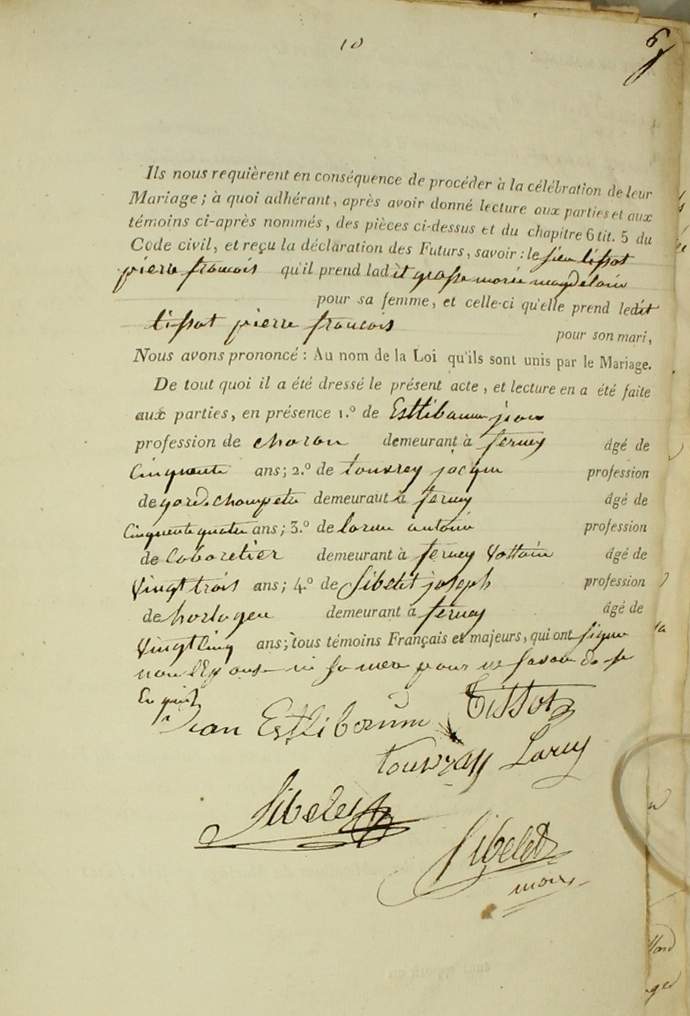 10
Ils nous requièrent en conséquence de procéder à la célébration de leur
Mariage; à quoi adhérant, après avoir donné lecture aux parties et aux
témoins ci-après nommés, des pièces ci-dessus et du chapitre 6 tit. 5 du
Code civil, et reçu la déclaration des Futurs, savoir: le sieur tissot
pierre francois qu'il prend ladit grosse marie magdelaine
pour sa femme, et celle-ci qu'elle prend ledit
tissot pierre francois pour son mari,
Nous avons prononcé: Au nom de la Loi qu'ils sont unis par le Mariage.
De tout quoi il a été dressé le présent acte, et lecture en a été faite
aux parties, en présence 1.º de jean
profession de charon demeurant à ferney âgé de
Cinquante ans; 2.º de jacque profession
de garde champetre demeurant à ferney âgé de
Cinquante quatre ans; 3.º de antoine profession
de Cabaretier demeurant à ferney Voltaire âgé de
Vingt trois ans; 4.º de Sibelet joseph profession
de horloger demeurant à ferney âgé de
Vingt Cinq ans; tous témoins Français et majeurs, qui ont signe
non ni sa mere pour ne savoir de ce
En quis
Jean Tissot
Sibelet
Sibelet